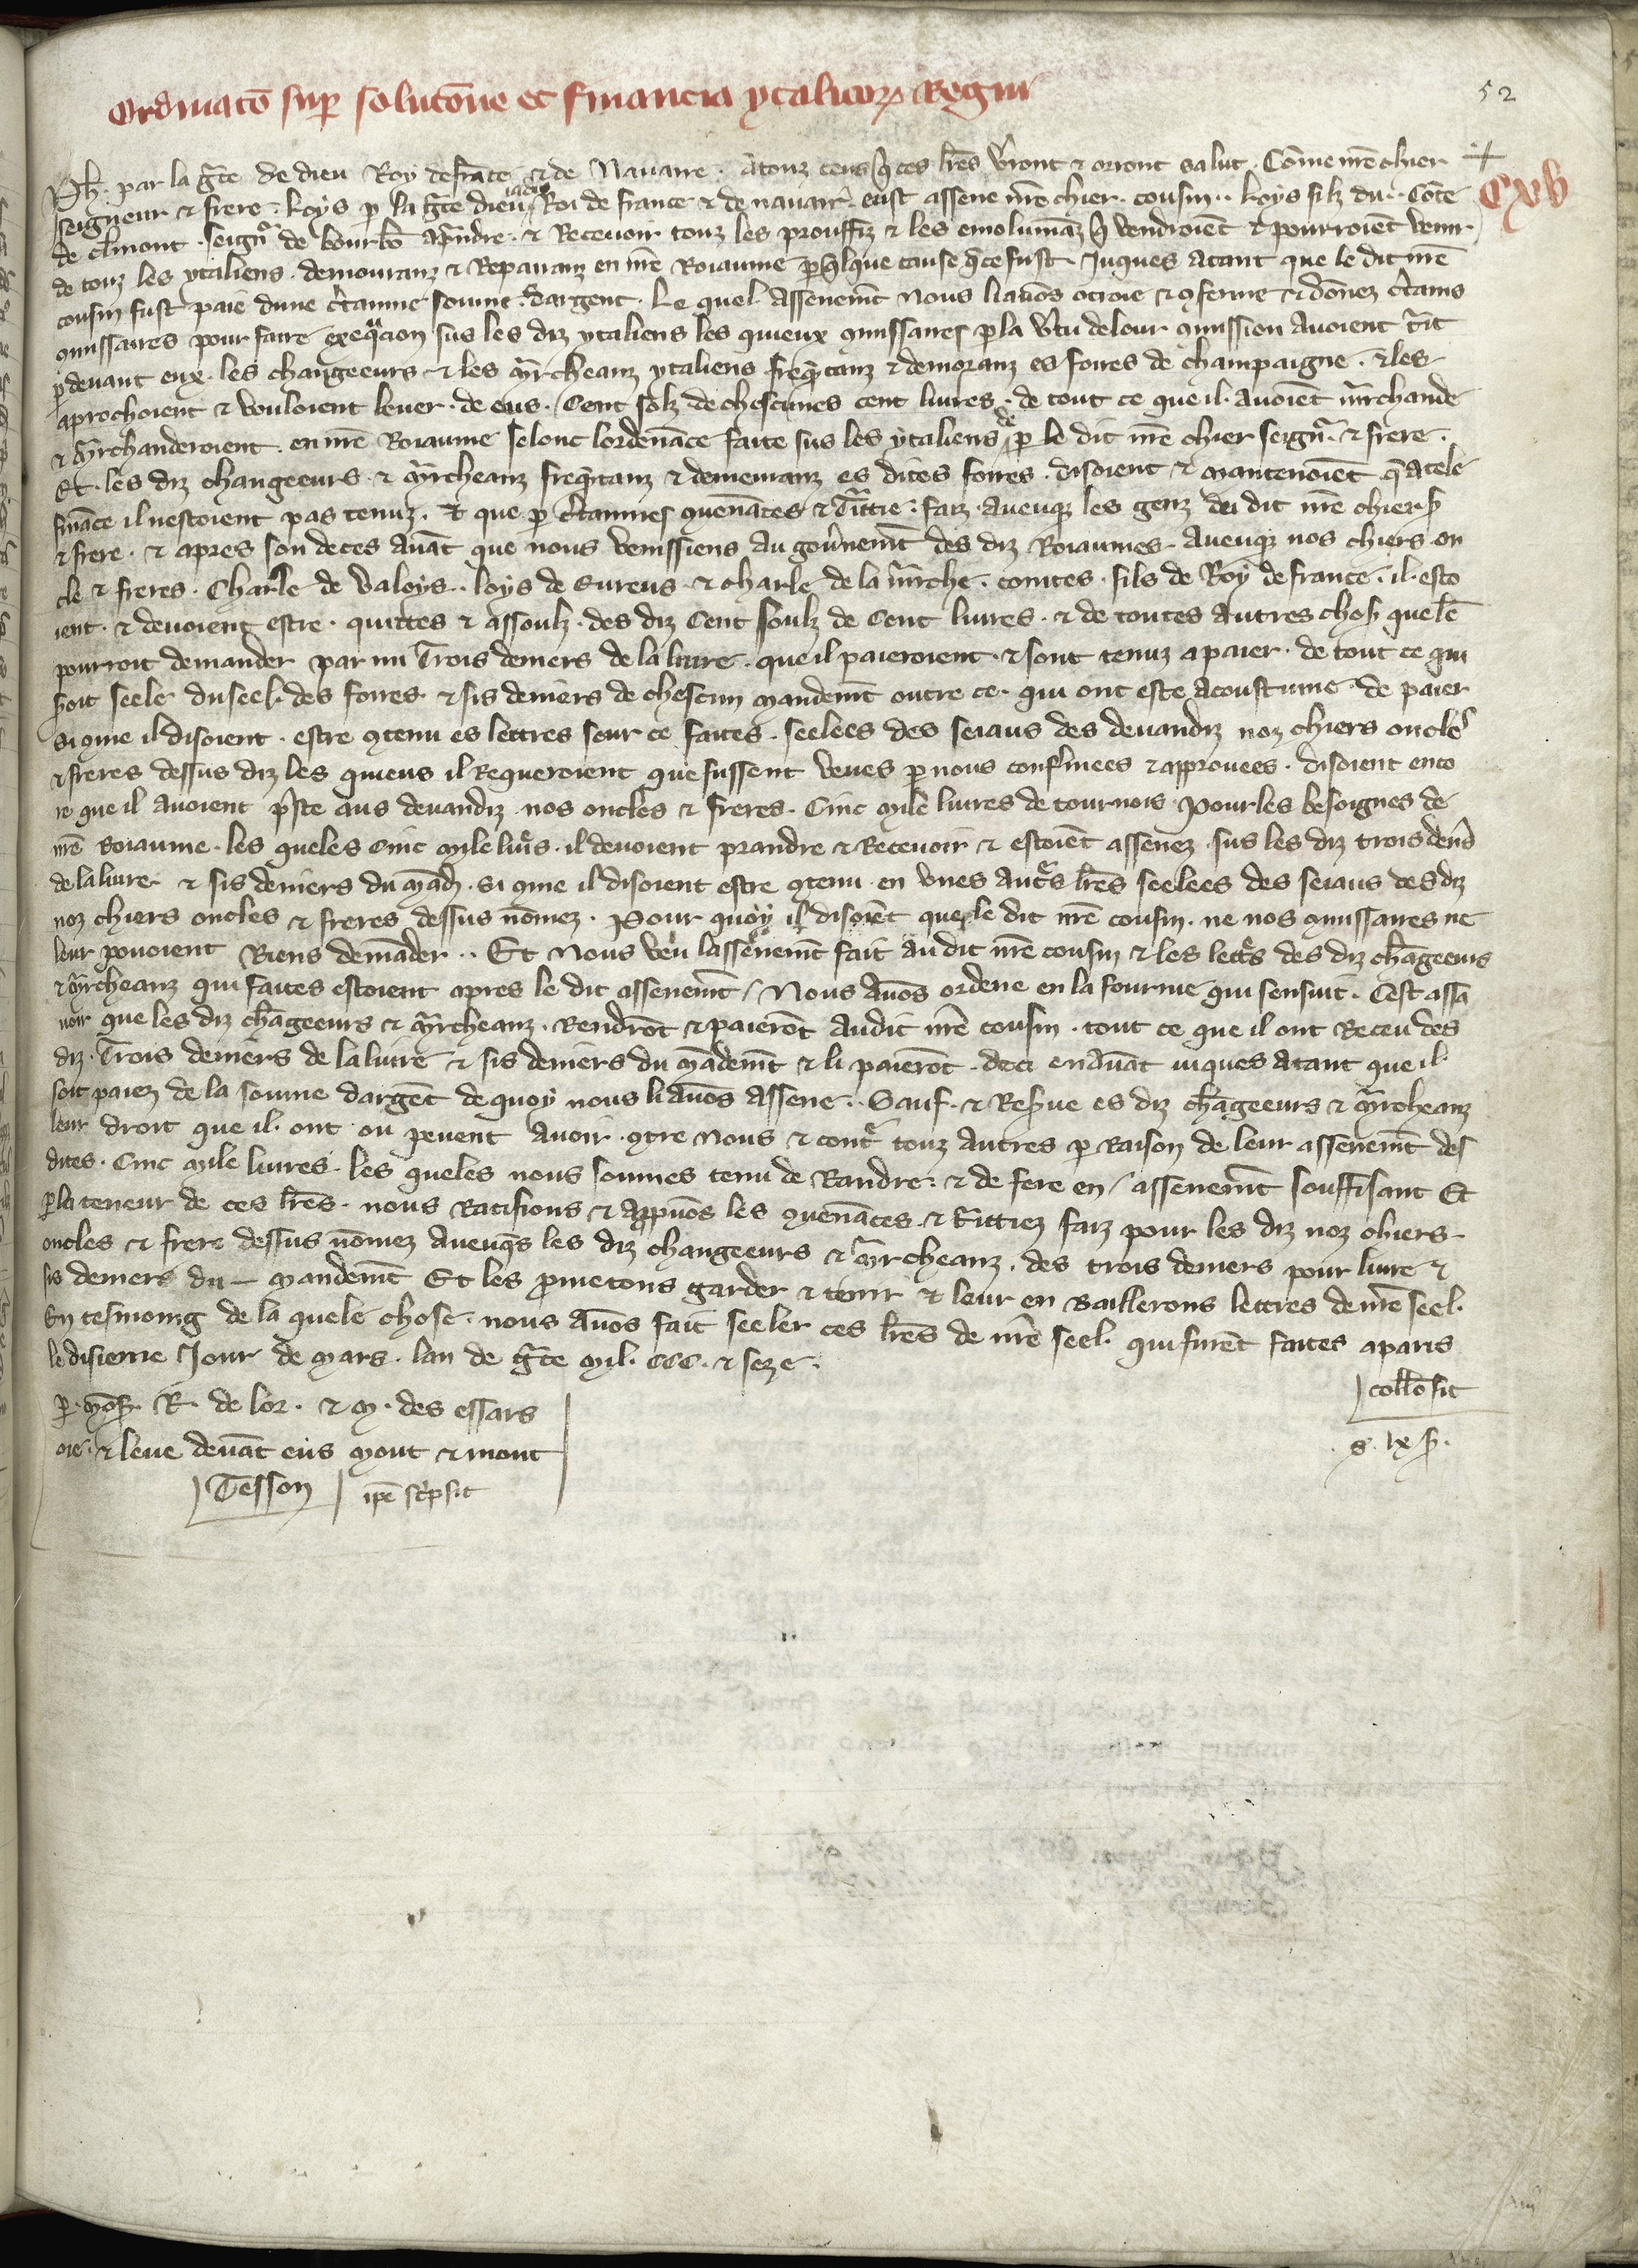 Ordinatō sup̄ solutōne et financia ytalicoꝝ Regni
52
Ph. par la gr̄ce de dieu Roy de frāce & de Nauarre. A touz ceus q̄ ces lr̄es v̄ront & orront salut. Cōme nr̄e chier
Cxv
seigneur & frere. Loys ꝑ la gr̄ce dieu iadis Roi de france & de nauarr̄. eust assene nr̄e chier. cousin. Loys filz du. Cōte
de clm̄ont. seignr̄ de bourbō a p̄ndre. & Receuoir touz les prouffiz & les emolumāz q̄ vendroiēt & pourroiēt venir
de touz les ytaliens. demouranz & Reparanz en nr̄e Roiaume ꝑ q̄lque cause q̄ ce fust. Juques atant que le dit nr̄e
cousin fust paie dune c̄taine somme. dargent. Le quel assenem̄t nous li auōs otroie & ꝯferme & dōnez c̄tains
ꝯmissaires pour faire exeqᷓcion sus les diz ytaliens les quieux ꝯmissaires ꝑ la v̄tu de leur ꝯmission auoient t̄it
ꝑ deuant eux. les changeeurs & les m̄rcheanz ytaliens freq̄ntanz & demoranz es foires de champaigne. & les
aprochoient & vouloient leuer. de eus. Cent solz de chescunes cent liures. de tout ce que il. auoiēt m̄rchande
& m̄rchanderoient. en nr̄e Roiaume selonc lordenāce faite sus les ytaliens de ꝑ le dit nr̄e chier seignr̄. & frere.
Et. les diz changeeurs. & m̄rcheanz freq̄ntanz & demeuranz es dites foires. disoient & maintenoiēt q̄ a tele
fināce il nestoient pas tenuz. Et que ꝑ c̄taines ꝯuenāces & t̄ittie. faiz. auecqꝫ les genz du dit nr̄e chier s̄
& frere. & apres son deces auāt que nous venissiens au gou̾nem̄t des diz Roiaumes. auecqꝫ nos chiers on
cle & freres. Charle de Valoys. loys de Eureus. & charle de la m̄rche. contes. fils de Roy de france. il. esto
ient. & deuoient estre. quittes & assoulz. des diz Cent soulz de Cent liures. & de toutes autres chos̄ que lē
pourroit demander par mi Trois deniers de la liure. que il paieroient. & sont tenuz a paier. de tout ce qui
s̄oit seele du seel. des foires & sis deniers de chescun mandem̄t outre ce. qui ont este acoustume. de paier
si ꝯme il disoient. estre ꝯtenu es lettres seur ce faites. seelees des seiaus des deuandiz noz chiers oncles
& freres dessus diz les quieus il Requeroient que fussent veues ꝑ nous confermees & approuees. disoient enco
re que il auoient p̄ste aus deuandiz nos oncles & freres. Cinc mile liures de tournois. Pour les besoignes de
nr̄e Roiaume. les queles Cinc mile liur̄s. il deuoient prandre & Receuoir & estoiēt assenez sus les diz trois den̄s
de la liure & sis deniers du mād̄. si ꝯme il disoient estre ꝯtenu en vnes autr̄s lr̄es seelees des seiaus des diz
noz chiers oncles & freres dessus nōmez. Pour quoy il disoiēt que le dit nr̄e cousin. ne nos ꝯmissaires ne
leur pouoient Riens demāder.. Et Nous veu lassenem̄t fait au dit nr̄e cousin & les lectr̄s des diz chāgeeurs
& m̄rcheanz qui faites estoient apres le dit assenem̄t / Nous auōs ordene en la fourme qui sensuit. Cest assa
uoir que les diz chāgeeurs & m̄rcheanz. Rendrōt & paierōt audit nr̄e cousin. tout ce que il ont Receu des
diz. Trois deniers de la liure & sis deniers du mādem̄t & li paierōt. deci en auāt iuques atant que il
soit paiez de la somme dargēt de quoy nous li auōs assene.. Sauf. & Res̄ue es diz chāgeeurs & m̄rcheanz
leur droit que il. ont ou peuent auoir. ꝯtre nous & contr̄ touz autres ꝑ Raison de leur assenem̄t des
dites. Cinc mile liures. les queles nous sommes tenu de Randre. & de fere en / assenem̄t souffisant Et
ꝑ la teneur de ces lr̄es. nous Ratifions & app̄uōs les ꝯuenāces. & t̄ittiez faiz pour les diz noz chiers
oncles & frere dessus nōmez auecq̄s les diz changeeurs & m̄rcheanz. des trois deniers pour liure &
sis deniers du — mandem̄t Et les p̄metons garder & tenir & leur en Baillerons lettres de nr̄e seel.
En tesmoing de la quele chose. nous auōs fait seeler ces lr̄es de nr̄e seel. qui furēt faites a paris
le disieme Jour de mars. lan de gr̄ce mil. CCC. & seze.
collō fit
ꝑ. mōs̄. R. de lor. & m. des essars
oie. & leue deuāt eus mont & mont
s. lx s̄.
Tesson ip̄e sc̄psit